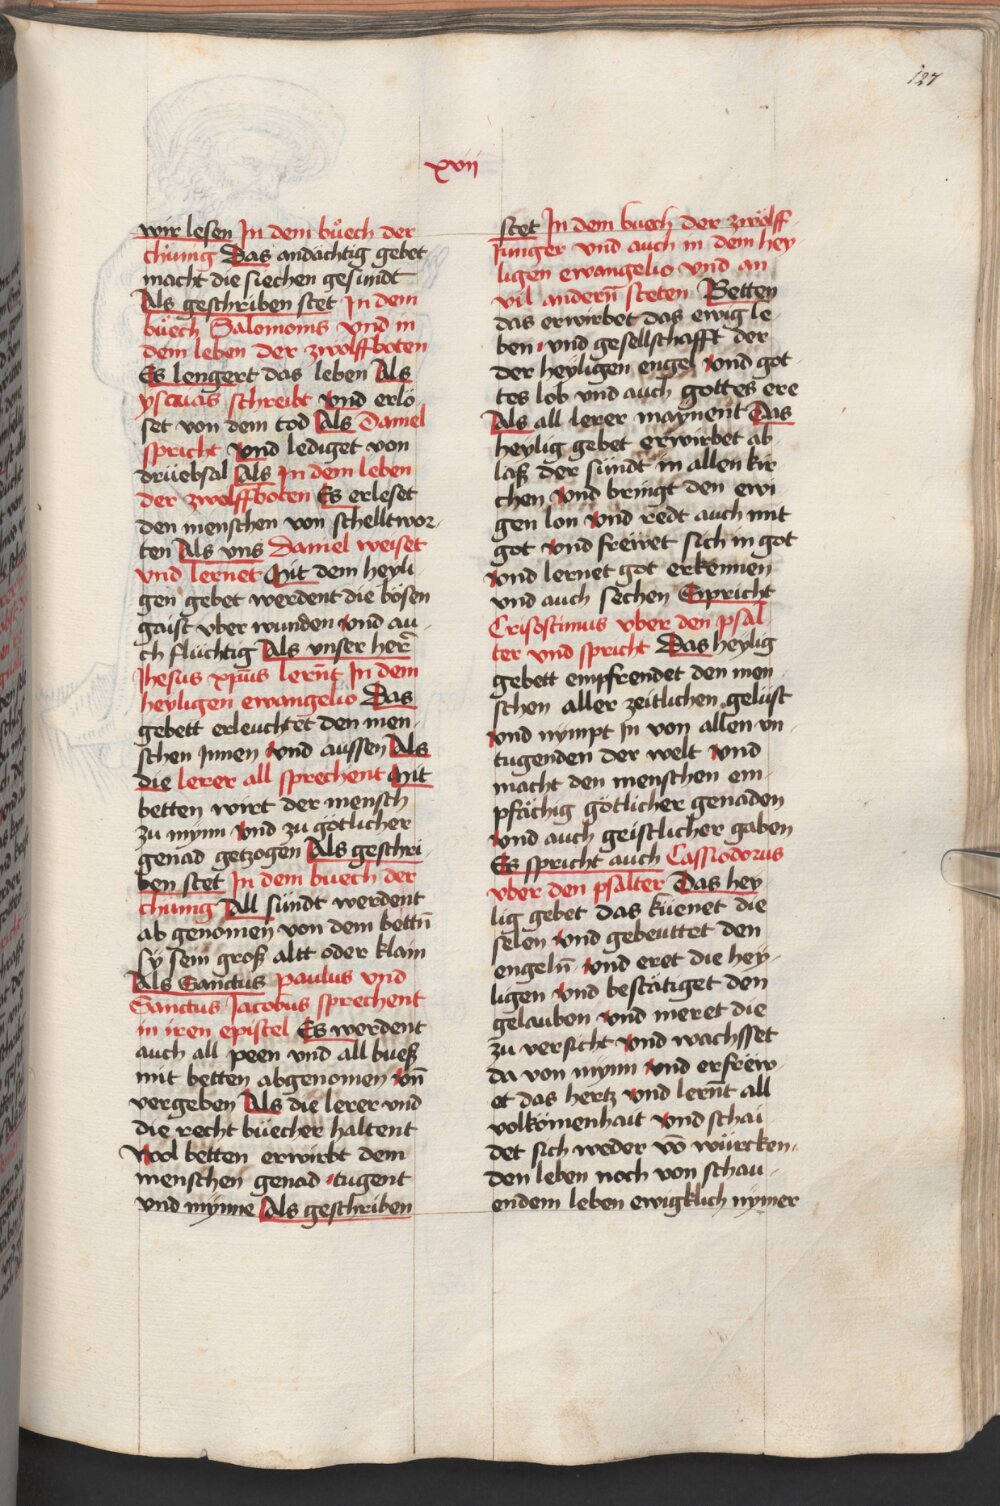 127
xvij
wir lesen In dem bůech der
chünig Das andächtig gebet
macht die siechen gesundt
Als geschriben stet In dem
büech Salomonis vnd in
dem leben der zwölffboten
Es lengert das leben Als
ysaias schreibt vnd erlö
set von dem tod Als Daniel
spricht vnd lediget von
drüebsal Als In dem leben
der zwelffboten Es erleset
den menschen von scheltwor-
ten Als vns Daniel weiset
vnd lernet Mit dem heyli
gen gebet werdent die bösen
gaist vber wunden vnd au-
ch flüchtig Als vnser her̄
Jhesus xp̄us lern̄t In dem
heyligen ewangelio Das
gebett erleuchtet den men-
schen Innen vnd aussen Als
die lerer all sprechent Mit
betten wirt der mensch
zu mynn vnd zu götlicher
genad getzogen Als geschri
ben stet In dem buech der
chünig All sündt werdent
ab genomen von dem bettn̄
sy sein groß altt oder klain
Als Sanctus paulus vnd
Sanctus Jacobus sprechent
in iren epistel Es werdent
auch all peen vnd all bueß
mit betten abgenomen vn̄
vergeben Als die lerer vnd
die recht büecher haltent
Wol betten erwirbt dem
menschen genad tugent
vnd mÿnne Als geschriben
stet In dem buech der zwölff
Junger vnd auch in dem hey
ligen ewangelio vnd an
vil andern̄ steten Betten
das erwirbet das ewig le
ben vnd gesellschafft der
der heyligen engel vnd got
tes lob vnd auch gottes ere
Als all lerer maynent Das
heylig gebet erwirbet ab
laß der sündt in allen kir
chen vnd bringt den ewi
gen lon vnd redt auch mit
got vnd frewet sich in got
vnd lernet got erkennen
vnd auch sechen Spricht
Crisostimus vber den psal
ter vnd spricht Das heylig
gebett empfrendet den men
schen aller zeitlichen gelüst
vnd nympt in von allen vn-
tugenden der welt vnd
macht den menschen em-
pfächig götlicher genaden
vnd auch geistlicher gaben
Es spricht auch Cassiodorus
vber den psalter Das hey
lig gebet das küenet die
selen vnd gebeuttet den
engeln̄ vnd eret die hey-
ligen vnd bestätiget den
gelauben vnd meret die
zu versicht vnd wachsset
da von mynn vnd erfrew-
et das hertz vnd lern̄t all
volkōmenhait vnd schai
det sich weder vō würcken-
den leben noch von schau-
endem leben ewigklich nymer